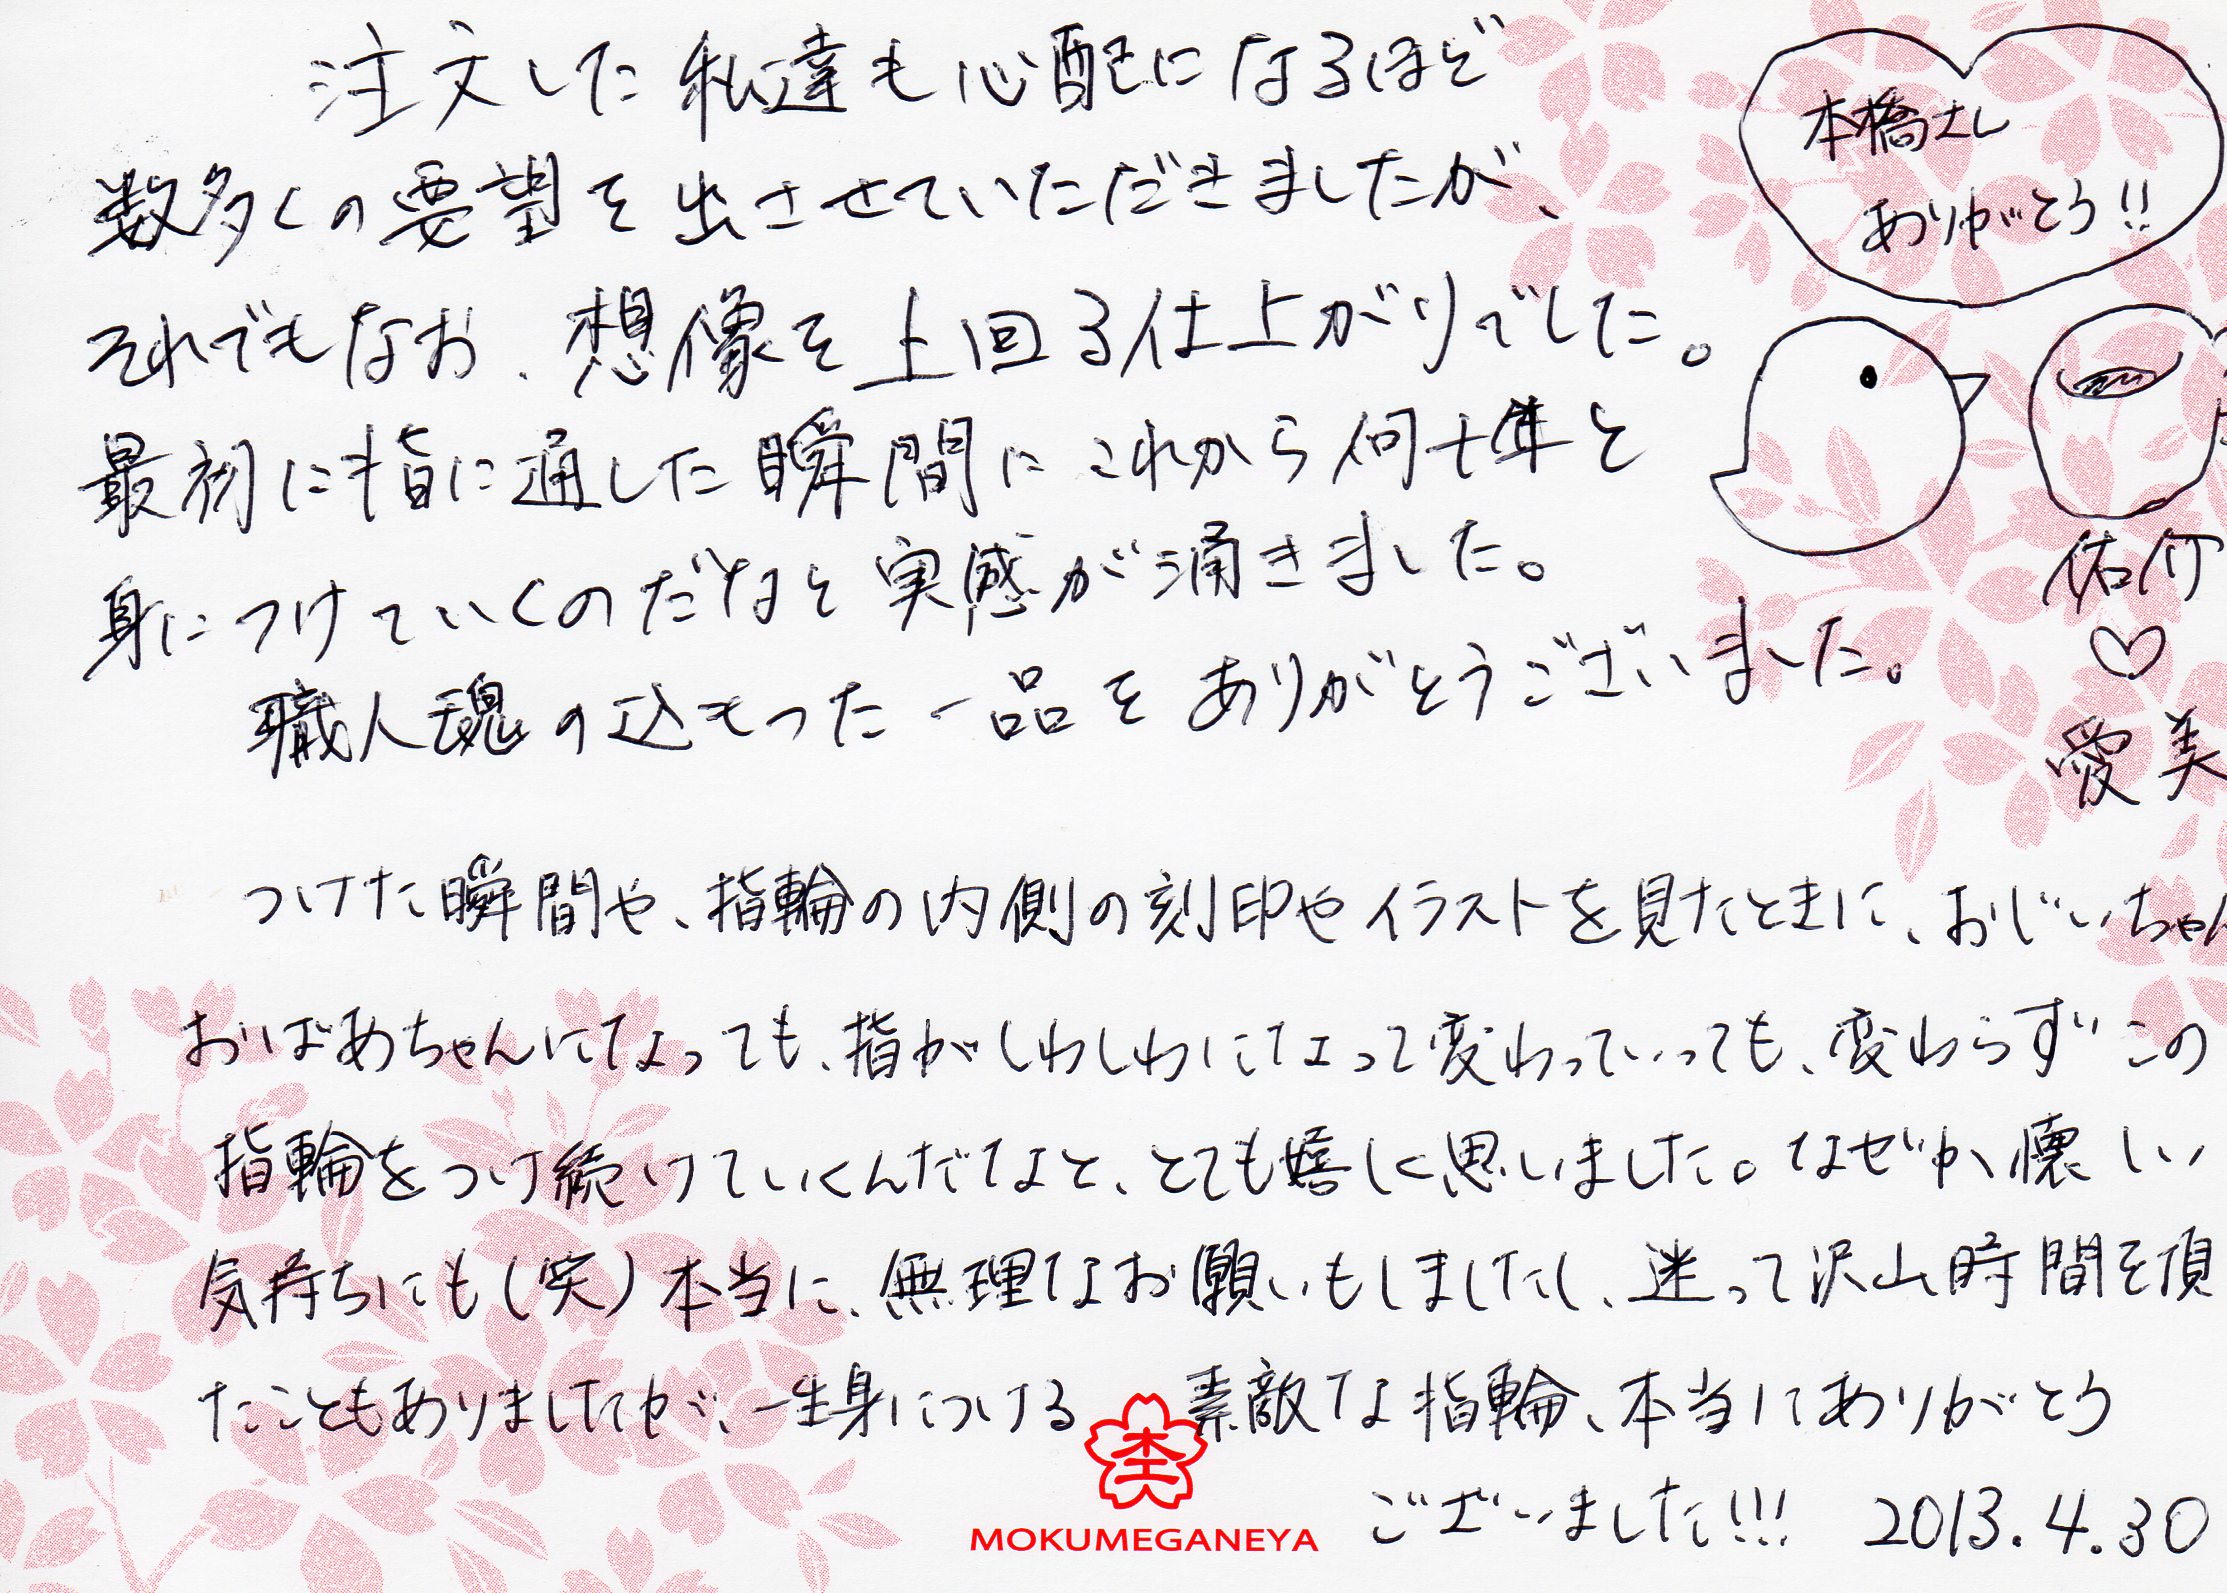 注文した私達も心配になるほど
数多くの要望を出させていただきましたが、
それでもなお、想像を上回る仕上がりでした。
最初に指に通した瞬間にこれから何十年と
身につけていくのだなと実感が涌きました。
職人魂の込もった一品をありがとうございました。
本橋さん
ありがとう!!
佑介
♡
愛美
つけた瞬間や、指輪の内側の刻印やイラストを見たときに、おじいちゃん
おばあちゃんになっても、指がしわしわになって変わっていっても、変わらずこの
指輪をつけ続けていくんだなと、とても嬉しく思いました。なぜか懐しい
気持ちにも(笑)本当に、無理なお願いもしましたし、迷って沢山時間を頂
たこともありましたが、一生身につける 素敵な指輪、本当にありがとう
ございました!!! 2013.4.30
MOKUMEGANEYA